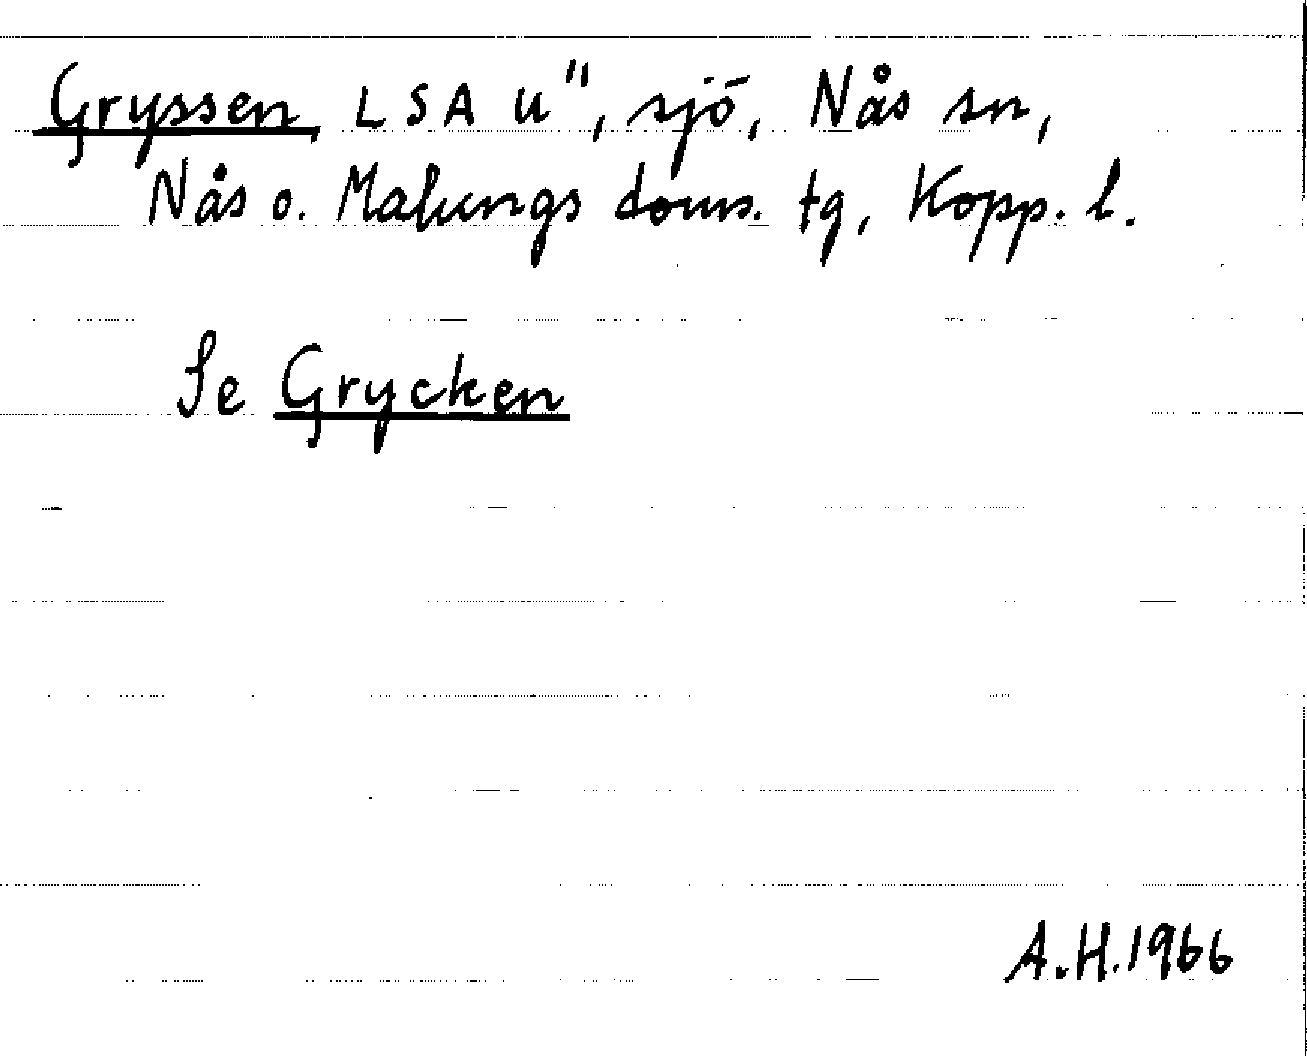 Gryssen, LSA u", sjö, Nås sn,
Nås o. Malungs doms. tg, Kopp. l.
Se Grycken
A.H.1966